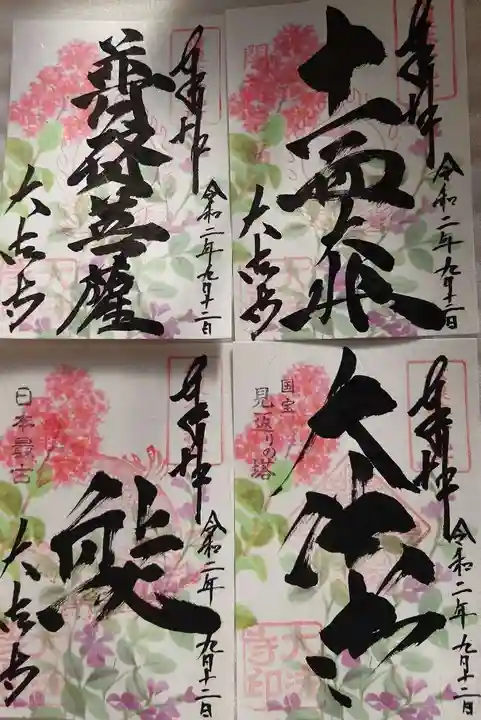 奉拝
普賢菩薩
令和二年九月十二日
大法寺
奉拝
十一面大悲
令和二年九月十二日
大法寺
奉拝
日本最古
令和二年九月十二日
大法寺
奉拝
国宝
見返りの塔
大法寺
令和二年九月十二日
大法
寺印